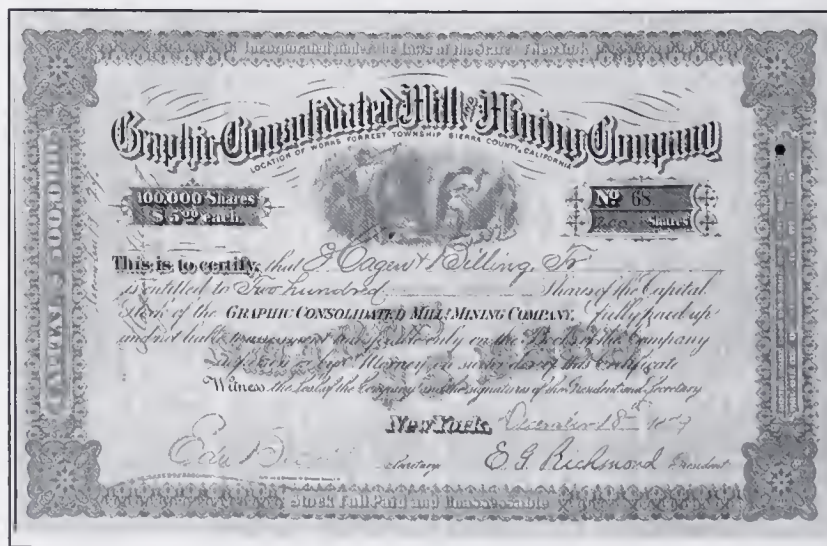 Incorporated under the Laws of the State of New York
Graphic Consolidated Mill AND Mining Company
LOCATION OF WORKS FORREST TOWNSHIP SIERRA COUNTY, CALIFORNIA
100,000 Shares
$5.00 each.
No 68
200 Shares
CAPITAL $500,000
This is to certify, that & Billing, Tr
is entitled to Two hundred Shares of the Capital
Stock of the GRAPHIC CONSOLIDATED MILL & MINING COMPANY, fully paid up
and not liable to assessment only on the Books of the Company
in person or by Attorney, on surrender of this Certificate
Witness the Seal of the Company and the signatures of the President and Secretary
New York, December 18th
Secretary E. G. Richmond President
Stock Full Paid and Unassessable